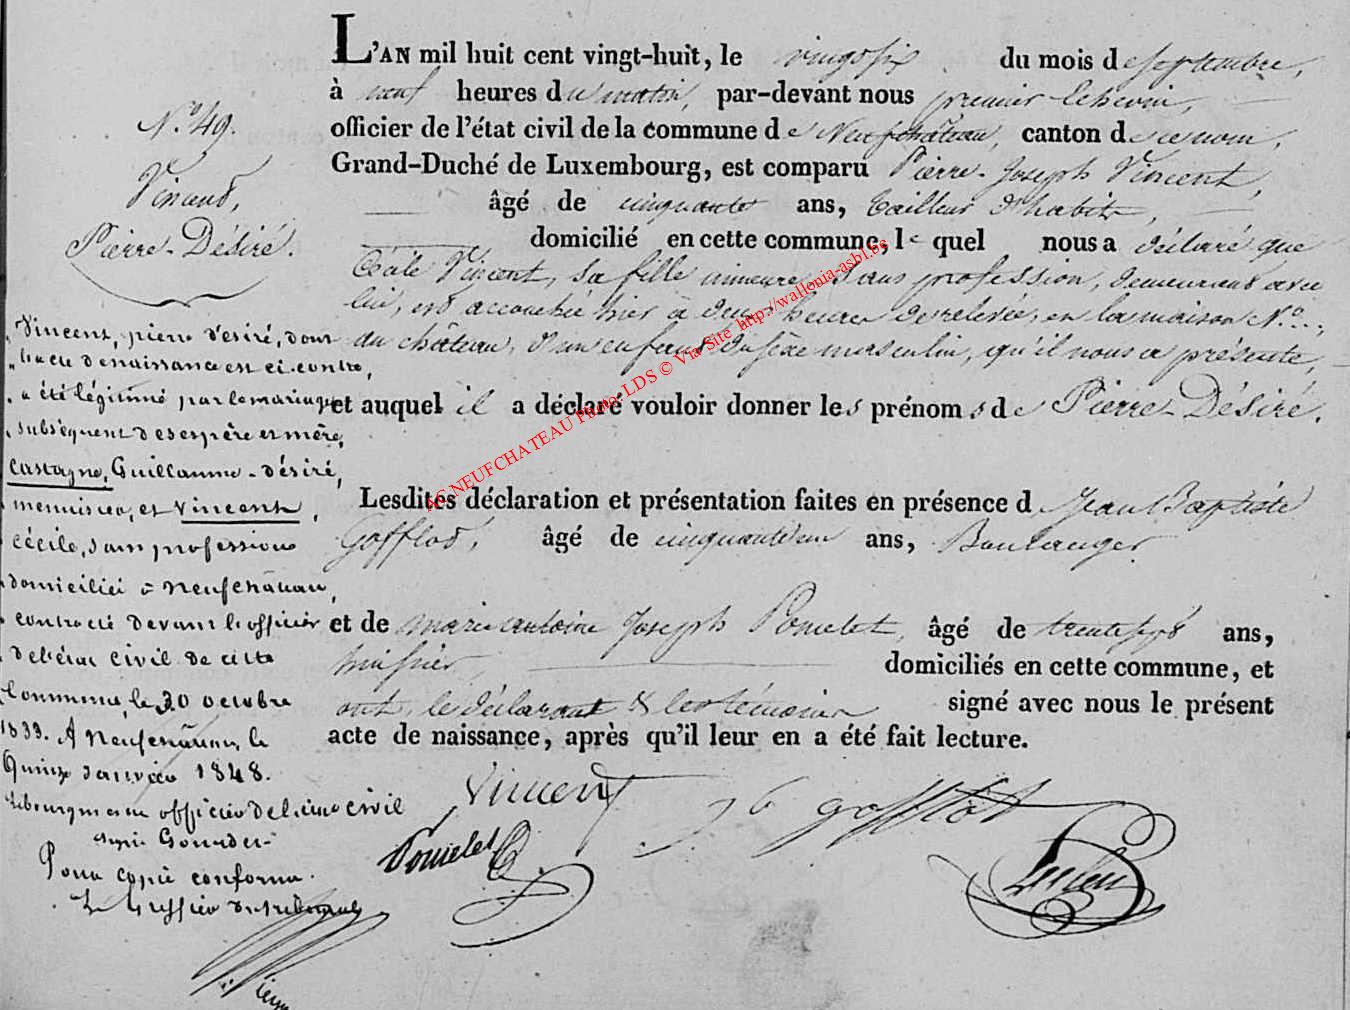 L'AN mil huit cent vingt-huit, le vingt six du mois de septembre,
à neuf heures du matin, par-devant nous premier Echevin,
officier de l'état civil de la commune de Neufchâteau, canton de ce nom,
Grand-Duché de Luxembourg, est comparu Pierre-Joseph Vincent,
âgé de cinquante ans, tailleur d'habits,
domicilié en cette commune, lequel nous a déclaré que
Cécile Vincent, sa fille mineure, sans profession, demeurant avec
lui, est accouchée hier à deux heures de relevée, en la maison N°
du château, d'un enfant du sexe masculin, qu'il nous a présenté,
et auquel il a déclaré vouloir donner les prénoms de Pierre-Désiré.
Lesdites déclaration et présentation faites en présence d Jean Baptiste
Gofflot, âgé de cinquante un ans, Boulanger
et de marie antoine Joseph Poncelet, âgé de trente sept ans,
huissier, domiciliés en cette commune, et
ont, le déclarant & les témoins signé avec nous le présent
acte de naissance, après qu'il leur en a été fait lecture.
Vincent
j b gofflot
Poncelet
N° 49.
Vincent,
Pierre-Désiré.
Vincent, pierre désiré, dont
l'acte de naissance est ci-contre,
a été légitimé par le mariage
subséquent de ses père et mère,
Castagne, Guillaume-désiré,
menuisier, et Vincent,
Cécile, sans profession
domiciliés à Neufchâteau,
contracté devant l'officier
de l'état civil de cette
Commune, le 30 octobre
1833. A Neufchâteau, le
Quinze Janvier 1848.
Le bourgmestre officier de l'état civil
signé Gourdet
Pour copie conforme.
Le Greffier du tribunal
AC NEUFCHATEAU Photo LDS © Via Site http://wallonia-asbl.be